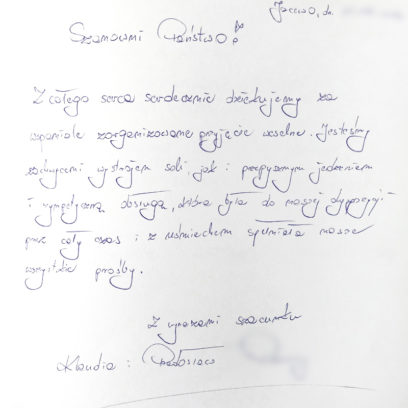 dn.
Szanowni Państwo
Z całego serca serdecznie dziękujemy za
wspaniale zorganizowane przyjęcie weselne. Jesteśmy
zachwyceni wystrojem sali jak i przepysznym jedzeniem
i sympatyczną obsługą, która była do naszej dyspozycji
przez cały czas i z uśmiechem spełniała nasze
wszystkie prośby.
Z wyrazami szacunku
Klaudia i